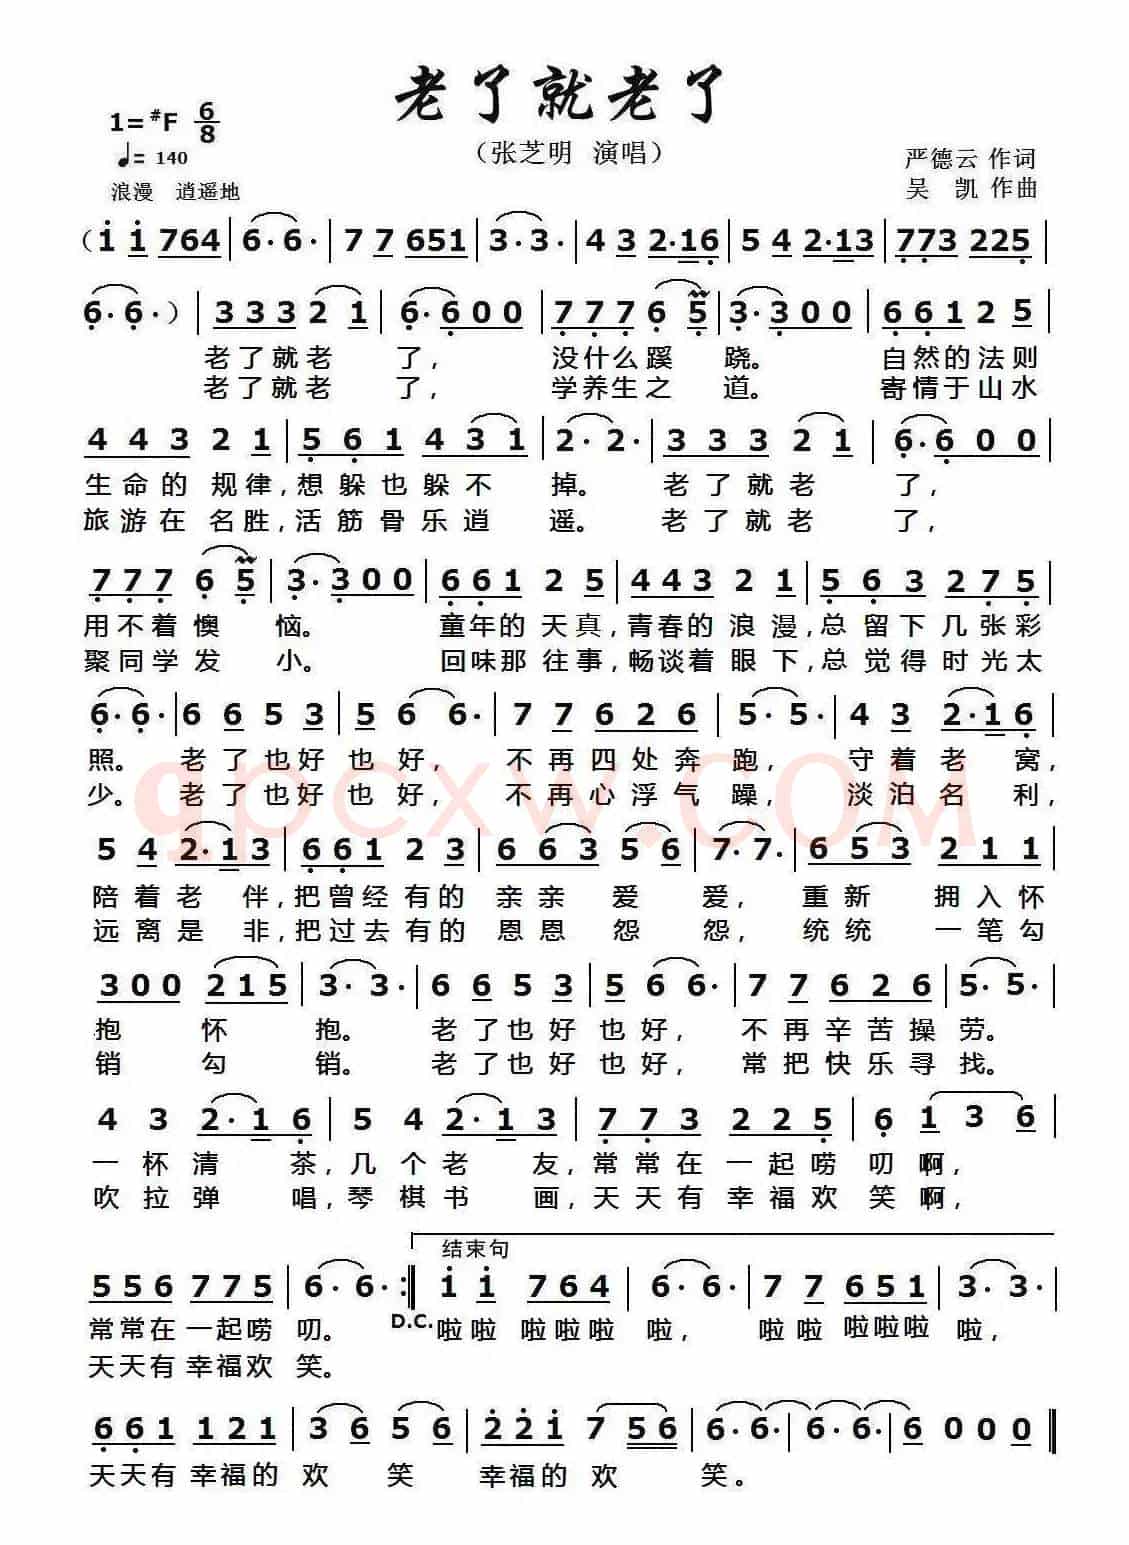 老了就老了
1=#F 6/8
（张芝明 演唱）
♩= 140
严德云 作词
浪漫 逍遥地
吴 凯 作曲
（i i 764 | 6· 6· | 7 7 651 | 3· 3· | 4 3 2·16 | 5 4 2·13 | 773 225 |
6· 6· ） | 3 3 3 2 1 | 6· 6 0 0 | 7 7 7 6 5 | 3· 3 0 0 | 6 6 1 2 5 |
老了就老 了， 没什么蹊 跷。 自然的法则
老了就老 了， 学养生之 道。 寄情于山水
4 4 3 2 1 | 5 6 1 4 3 1 | 2· 2· | 3 3 3 2 1 | 6· 6 0 0 |
生命的规律，想躲也躲不 掉。 老了就老 了，
旅游在名胜，活筋骨乐逍 遥。 老了就老 了，
7 7 7 6 5 | 3· 3 0 0 | 6 6 1 2 5 | 4 4 3 2 1 | 5 6 3 2 7 5 |
用不着懊 恼。 童年的天真，青春的浪漫，总留下几张彩
聚同学发 小。 回味那往事，畅谈着眼下，总觉得时光太
6· 6· | 6 6 5 3 | 5 6 6· | 7 7 6 2 6 | 5· 5· | 4 3 2·1 6 |
照。 老了也好也好， 不再四处奔 跑， 守着老 窝，
少。 老了也好也好， 不再心浮气 躁， 淡泊名 利，
qpcxw.COM
5 4 2·1 3 | 6 6 1 2 3 | 6 6 3 5 6 | 7· 7· | 6 5 3 2 1 1 |
陪着老 伴，把曾经有的 亲亲 爱 爱， 重新 拥入怀
远离是 非，把过去有的 恩恩 怨 怨， 统统 一笔勾
3 0 0 2 1 5 | 3· 3· | 6 6 5 3 | 5 6 6· | 7 7 6 2 6 | 5· 5· |
抱 怀 抱。 老了也好也好， 不再辛苦操 劳。
销 勾 销。 老了也好也好， 常把快乐寻 找。
4 3 2·1 6 | 5 4 2·1 3 | 7 7 3 2 2 5 | 6 1 3 6 |
一杯清 茶，几个老 友，常常在一起唠叨啊，
吹拉弹 唱，琴棋书 画，天天有幸福欢笑啊，
结束句
5 5 6 7 7 5 | 6· 6· :‖ i i 7 6 4 | 6· 6· | 7 7 6 5 1 | 3· 3· |
常常在一起唠 叨。 D.C. 啦啦 啦啦啦 啦， 啦啦 啦啦啦 啦，
天天有幸福欢 笑。
6 6 1 1 2 1 | 3 6 5 6 | 2 2 i 7 5 6 | 6· 6· | 6· 6· | 6 0 0 0 ‖
天天有 幸福的 欢 笑 幸福的 欢 笑。